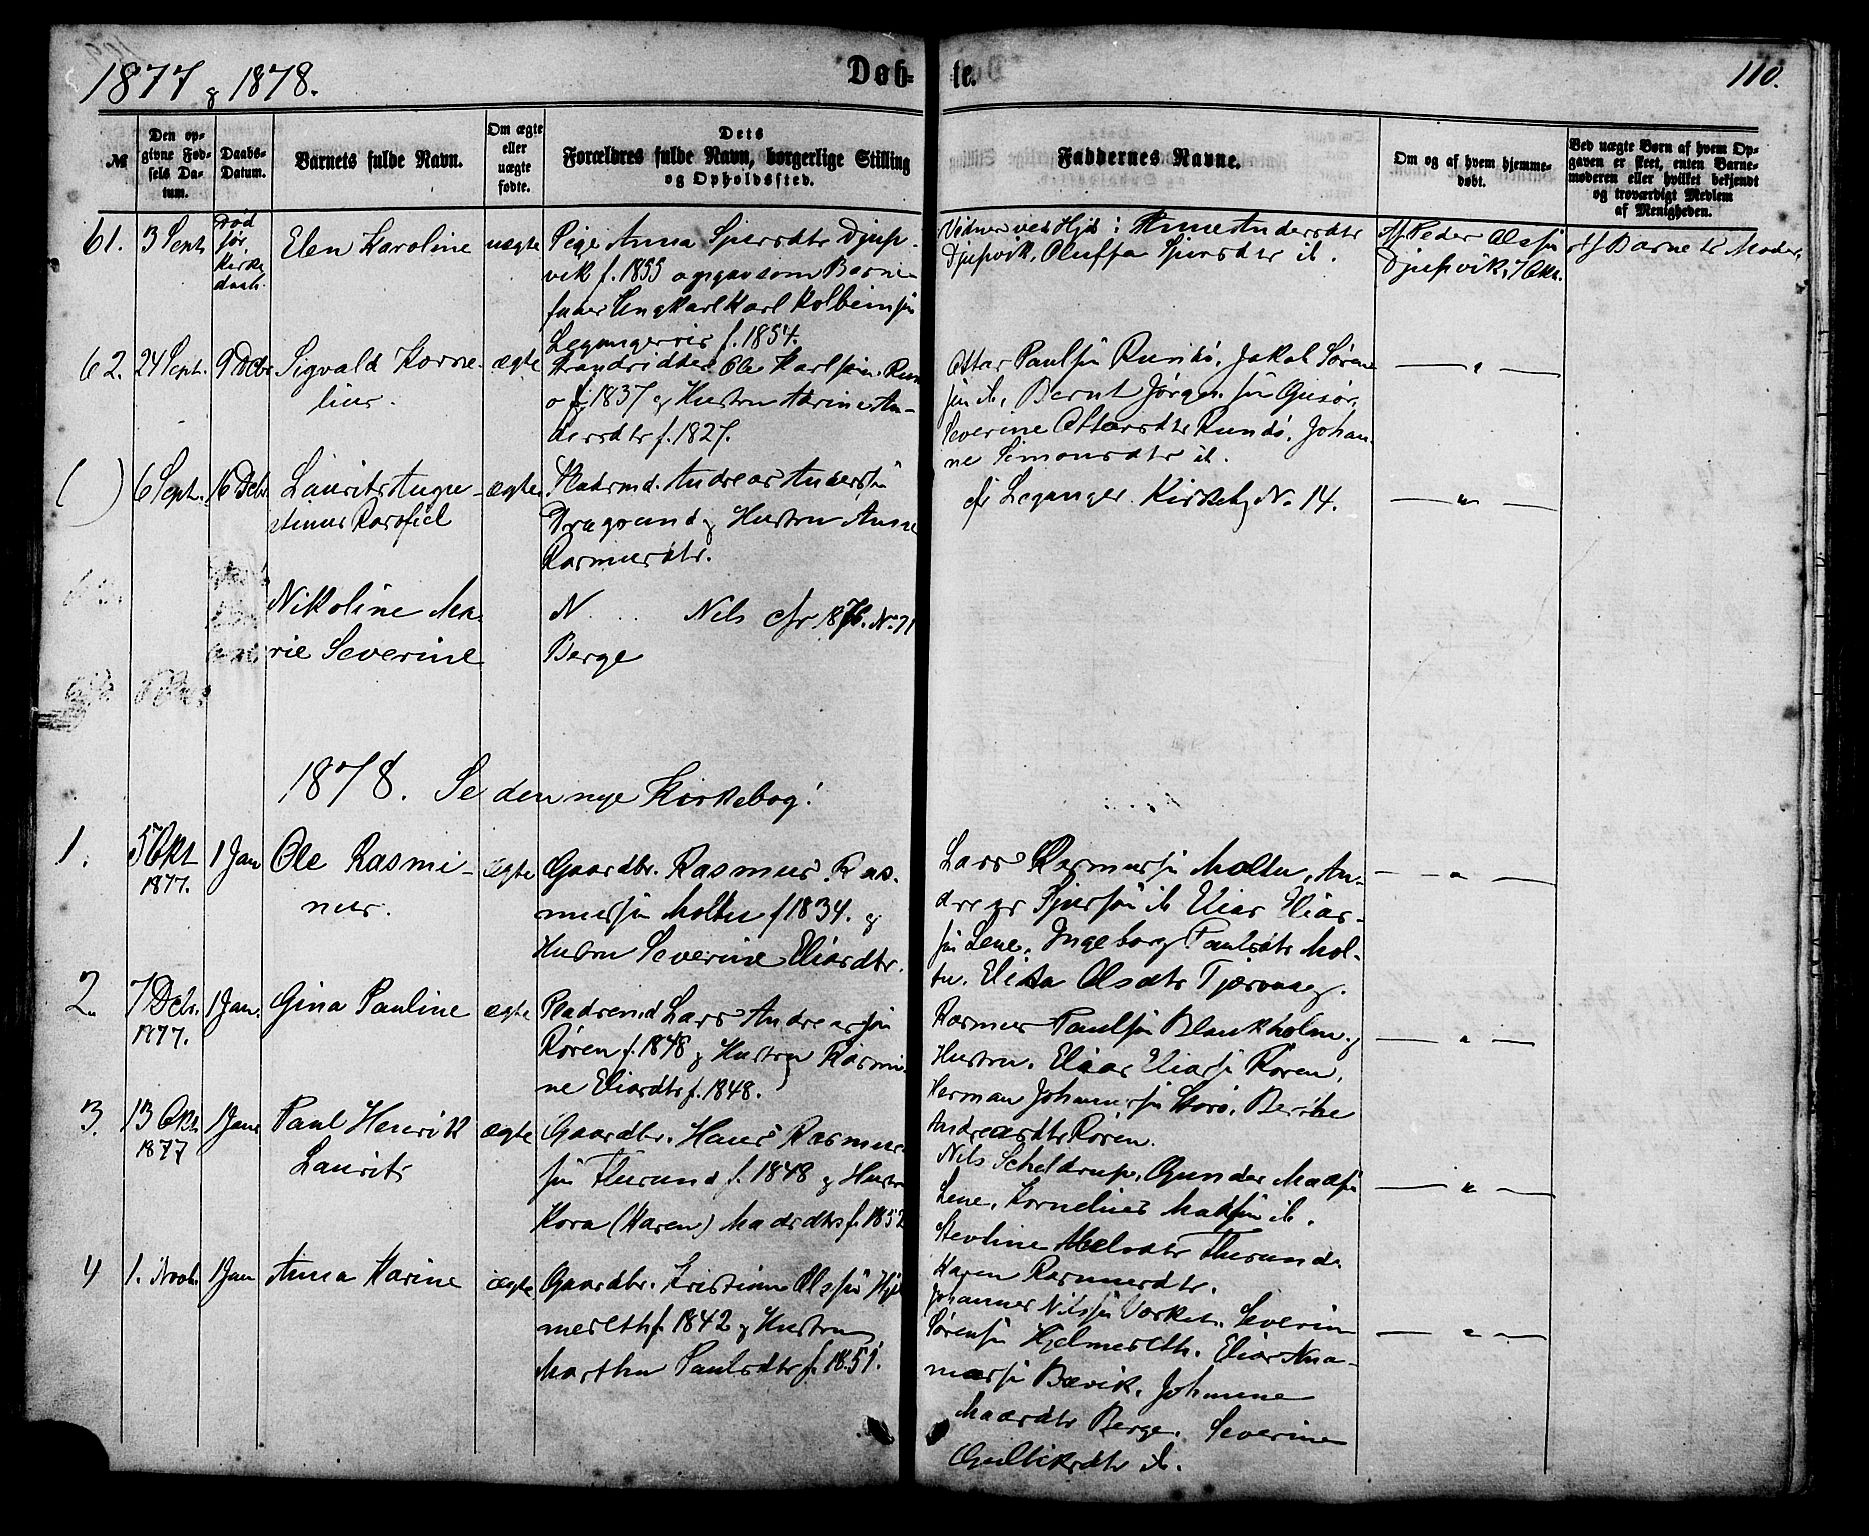 1877 & 1878.
Døb-
te.
110.
№
Den op-
givne Fød-
sels Da-
tum.
Daabs-
Datum.
Barnets fulde Navn.
Om ægte
eller
uægte
fødte.
Dets
Forældres fulde Navn, borgerlige Stilling
og Opholdssted.
Faddernes Navne.
Om og af hvem hjemme-
døbt.
Ved uægte Børn af hvem Op-
gaven er skeet, enten Barne-
moderen eller hvilket bekjendt
og troværdigt Medlem
af Menigheden.
61. 3 Sept.
Død
før
Kirke
daab.
Elen Karoline uægte
Pige Anna Sjursdtr Djup-
vik f. 1855 opgav som Barne-
fader Ungkarl Karl Kolbeinsøn
f. 1854.
Vidner ved Hjd: Anne Andersdtr
Djupvik, Oluffa Sjursdtr ib.
Af Peder Olsøn
Djupvik, 7 Okt.
Af Barnets Moder.
62. 24 Sept. 9 Dcbr Sigvald Korne-
lius. ægte
Strandsidder Ole Karlsøn Run-
ø f. 1837 & Hustru Marine An-
dersdtr f. 1827.
Ottar Paulsøn Rundø, Jakob Søren-
søn ib, Bernt Jørgensøn Gusør,
Severine Ottarsdtr Rundø, Johan-
ne Simonsdtr ib.
— " —
( ) 6 Sept. 16 Dcbr. Laurits Augu-
stinus ægte
Pladsmd. Andreas Andersøn
Dragsund & Hustru Anne
Rasmusdtr.
cfr Leganger Kirkebg No 14.
— " —
Nikoline Ma-
rie Severine
N... Nils cfr 1876. No 71
Berge
1878. Se den nye Kirkebog!
1. 5 Okt
1877. 1 Jan Ole Rasmi-
nus. ægte
Gaardbr. Rasmus Ras-
mussøn Moltu f 1834. &
Hustru Severine Eliasdtr.
Lars Rasmussøn Moltu, An-
dreas Sjursøn ib Elias Elias-
søn Lene, Ingeborg Paulsdtr Mol-
tu. Elisa Olsdtr Tjørvaag.
— " —
2. 7 Dcbr.
1877. 1 Jan. Gina Pauline ægte
Pladsmd Lars Andreassøn
Røren f. 1848 & Hustru Rasmi-
ne Eliasdtr f. 1848.
Rasmus Paulsøn Blankholm &
Hustru. Elias Eliassøn Røren,
Herman Johannessøn Storø, Berthe
Andreasdtr Røren.
— " —
3. 13 Okt.
1877 1 Jan Paul Henrik
Laurits ægte
Gaardbr. Hans Rasmus-
søn Flusund f. 1848 & Hustru
Kora (Karen) Madsdtr f. 1852
Nils Scheldrup, Gunder Madsøn
Lene, Kornelius Madsøn ib.
Stevline Flusund.
Karen Rasmusdtr.
— " —
4 1. Novb. 1 Jan Anna Karine ægte
Gaardbr. Kristian Olssøn Hjel-
meseth f. 1842 & Hustru
Martha Paulsdtr f. 1851.
Johannes Nilssøn Værket. Severin
Sørensøn Hjelmeseth. Elias Ama-
Bævik. Johanne
Madsdtr Berge. Severine
Gullikdtr ib.
— " —